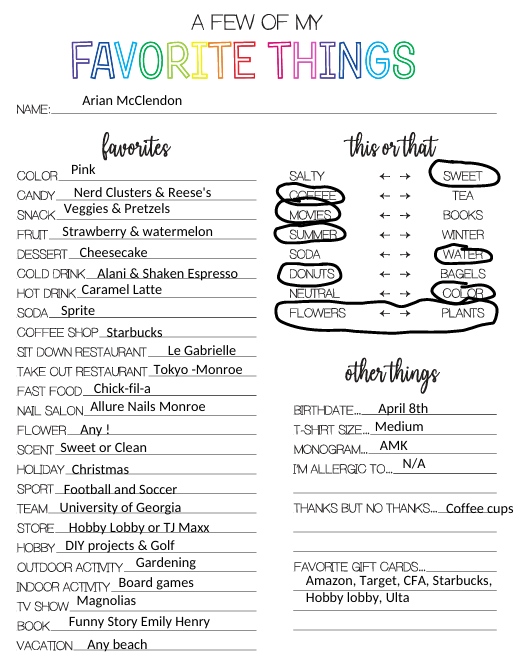 A FEW OF MY
FAVORITE THINGS
NAME: Arian McClendon
favorites
COLOR Pink
CANDY Nerd Clusters & Reese's
SNACK Veggies & Pretzels
FRUIT Strawberry & watermelon
DESSERT Cheesecake
COLD DRINK Alani & Shaken Espresso
HOT DRINK Caramel Latte
SODA Sprite
COFFEE SHOP Starbucks
SIT DOWN RESTAURANT Le Gabrielle
TAKE OUT RESTAURANT Tokyo -Monroe
FAST FOOD Chick-fil-a
NAIL SALON Allure Nails Monroe
FLOWER Any !
SCENT Sweet or Clean
HOLIDAY Christmas
SPORT Football and Soccer
TEAM University of Georgia
STORE Hobby Lobby or TJ Maxx
HOBBY DIY projects & Golf
OUTDOOR ACTIVITY Gardening
INDOOR ACTIVITY Board games
TV SHOW Magnolias
BOOK Funny Story Emily Henry
VACATION Any beach
this or that
SALTY ← → SWEET
COFFEE ← → TEA
MOVIES ← → BOOKS
SUMMER ← → WINTER
SODA ← → WATER
DONUTS ← → BAGELS
NEUTRAL ← → COLOR
FLOWERS ← → PLANTS
other things
BIRTHDATE... April 8th
T-SHIRT SIZE... Medium
MONOGRAM... AMK
I'M ALLERGIC TO... N/A
THANKS BUT NO THANKS... Coffee cups
FAVORITE GIFT CARDS...
Amazon, Target, CFA, Starbucks,
Hobby lobby, Ulta